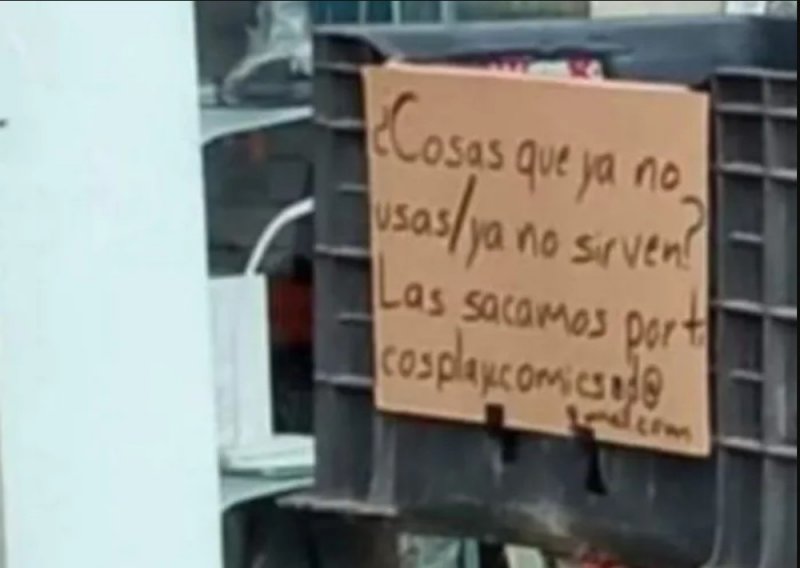 ¿Cosas que ya no
usas/ya no sirven?
Las sacamos por ti
@
gmail.com